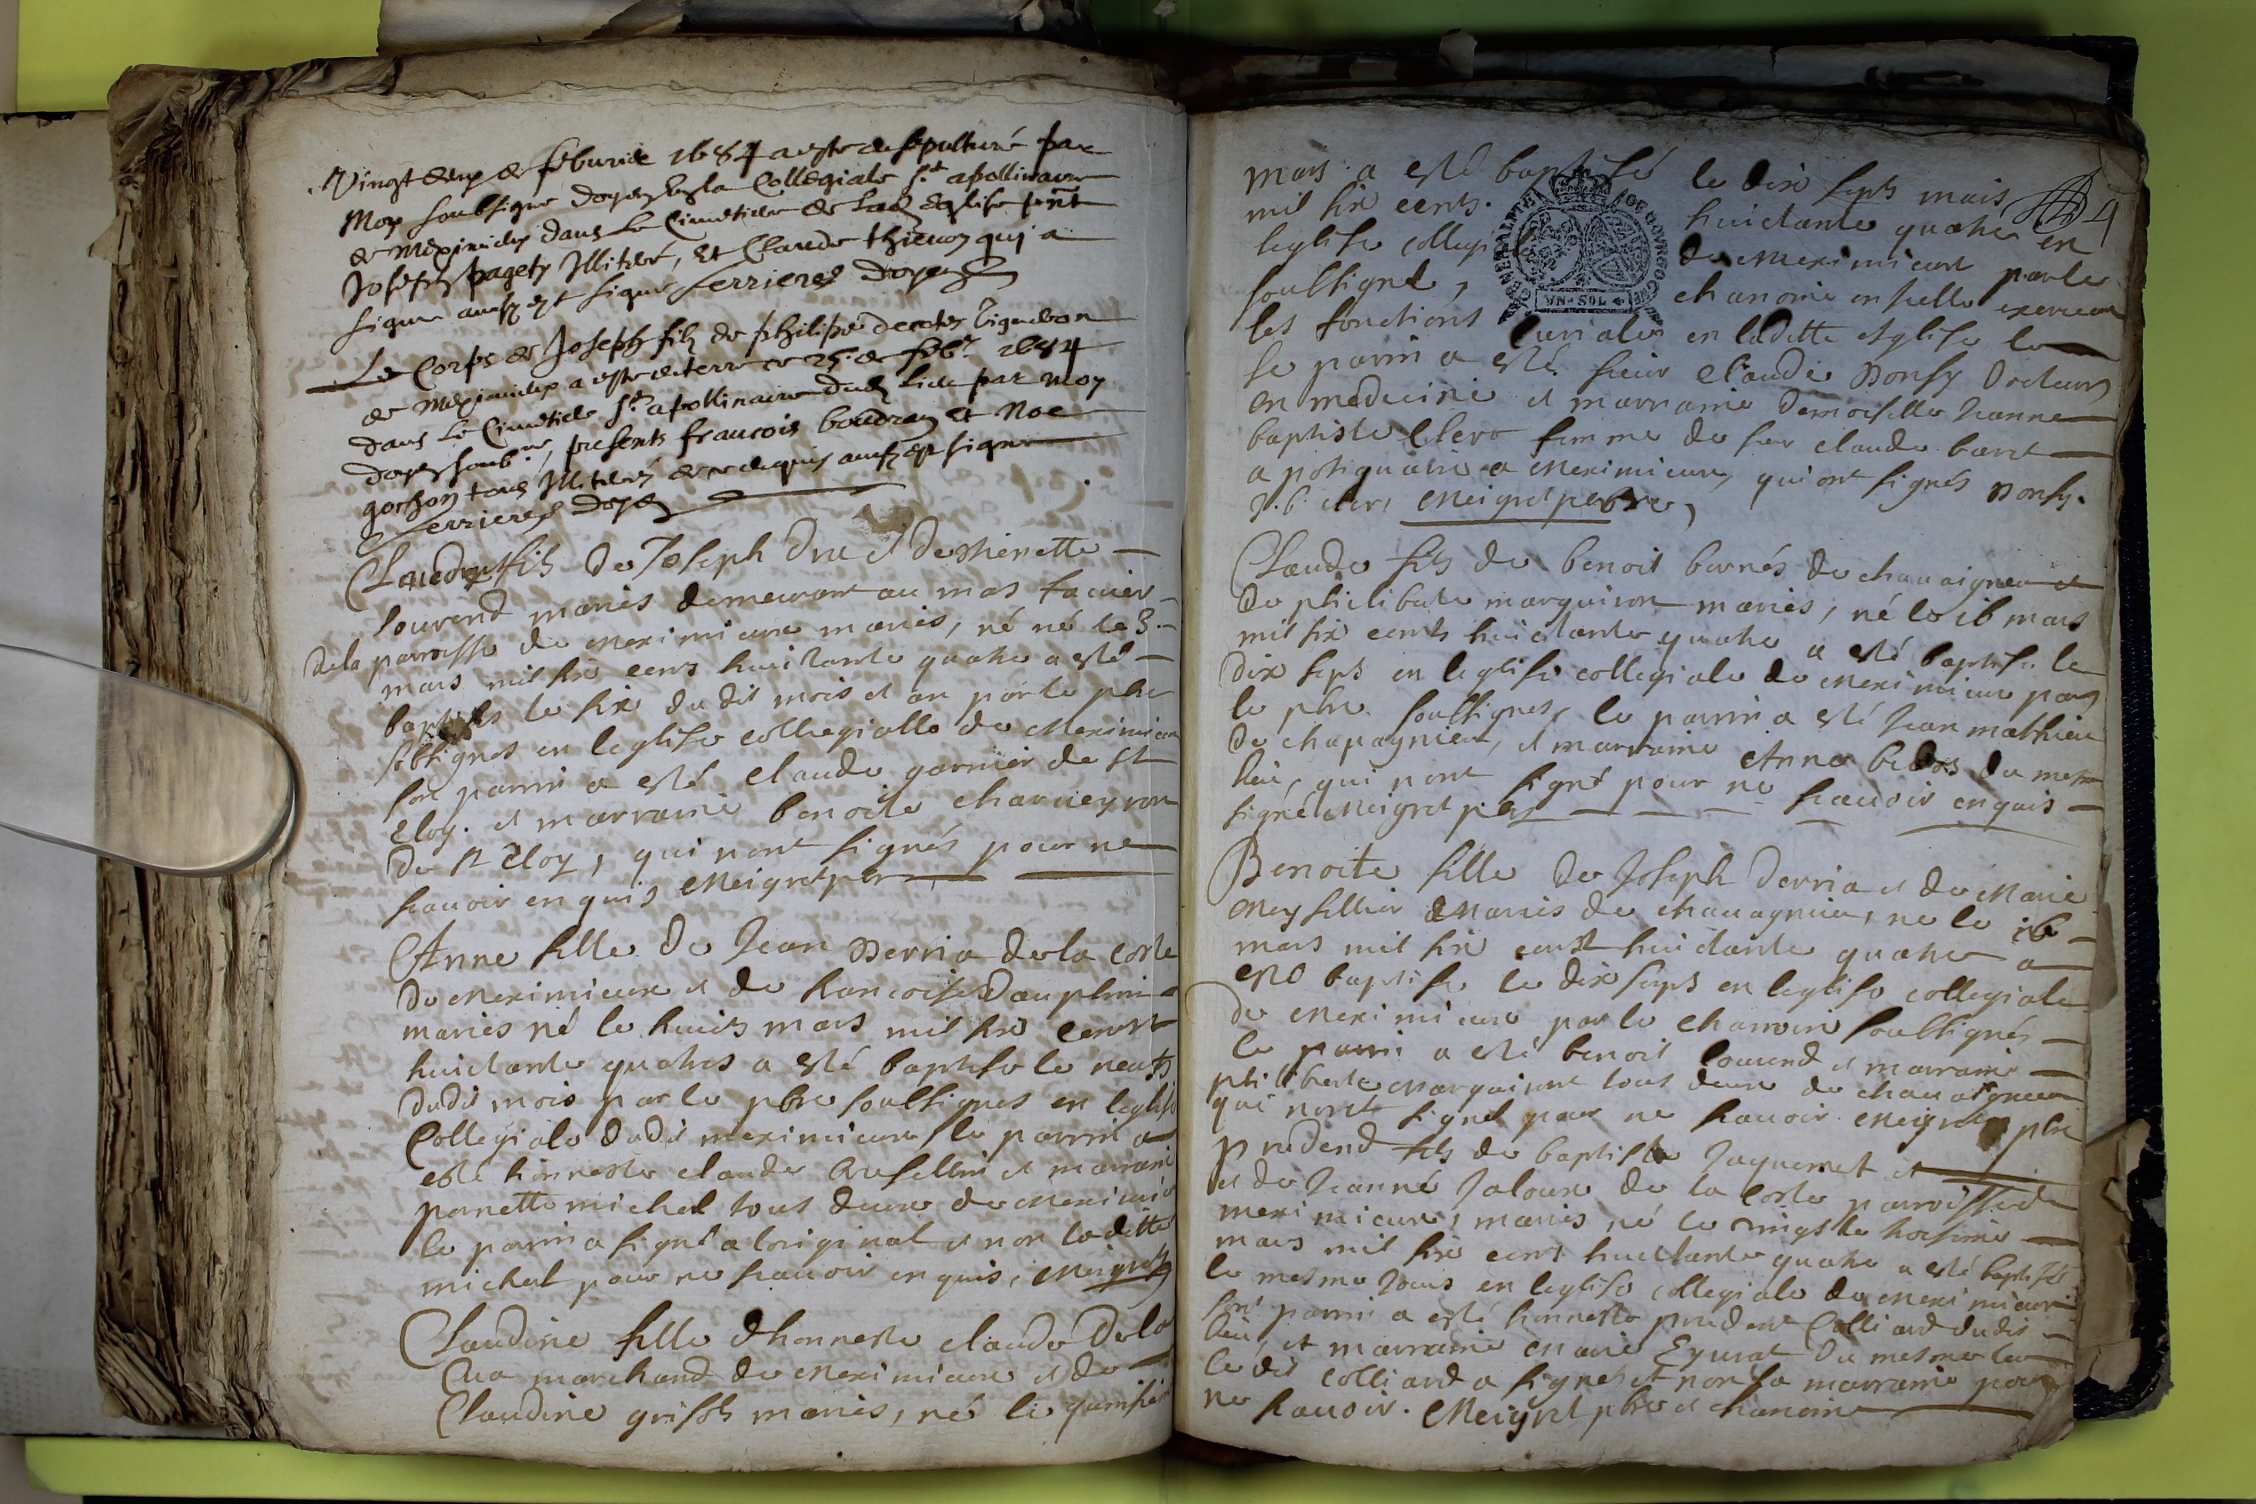 Vingt deux de feburie 1684 a este de sepulturé par
Moy soubsigne doyen en la Collegiale st apollinaire
de Meximieux dans le Cimetiere de lad eglise pnt
Joseph pagety Illiteré, et Claude thieuoz qui a
signe aussy et signe ferrieres doyen
Le Corps de Joseph filz de philipe decotes vigneron
de Meximieux a este deterre ce 25e de feb. 1684
dans le Cimetiere st apollinaire dud lieu par moy
doyen soub.ne, presents francois boudran et Noe
gochon tous Illiterés de ce enquis aussy et signe
ferrieres doyen
Claude fils de Joseph Duc et de thienette
Louvend mariés demeurant au mas tacuier
de la parroisse de meximieux mariés, né né le 3.
mars mil six cens huictante quatre a esté
baptisés le six dudit mois et an par le pbre
sobsignés en leglise collegialle de Meximieux
son parrin a esté claude garnier de st
Eloy. et marraine benoite charveyron
de st Eloy, qui nont signés pour ne
scavoir enquis Meigret pbre
Anne fille de Jean Derria de la coste
de Meximieux et de francoise Dauphin
mariés né le huict mars mil six cents
huictante quatres a esté baptise le neufs
dudit mois par le pbre soubsignes en leglise
Collegiale dudit meximieux le parrin a
esté honneste claude et marraine
pernette michel tous deux de Meximieux
le parrin a signé a loriginal et non laditte
michel pour ne scavoir enquis, Meigret
Claudine fille dhonneste claude Dela
Cua marchand de Meximieux et de
Claudine grisols mariés, né le quinsieme
mars a esté baptisé le dix sept mars 4
mil six cents. huictante quatre en
leglise collegiale de Meximieux par le
soubsigné, chanoine en icelle exerceant
les fonctions curiales en ladette esglise le
le parrin a esté sieur claude Donsy Docteur
en medecine et marraine demoiselle Jeanne
baptiste Clerc femme de sieur claude baret
apotiquaire a Meximieux, qui ont signés Donsy.
J. b. clerc Meigret pbre,
Claude fils de benoit burnés de chavaigneu et
de philiberte marguiron mariés, né le 16 mars
mil six cents huictante quatre a esté baptise le
dix sept en leglise collegiale de meximieux par
le pbre soussignes, le parrin a esté Jean mathieu
de chapagnieu, et marraine Anne du mesme
lieu, qui nont signé pour ne scavoir enquis
signé Meigret pbre
Benoite fille de Joseph Derria et de Marie
Meysellier Mariés de chavagnieu, né le 16
mars mil six cents huictante quatre a
esté baptise le dix sept en leglise collegiale
de Meximieux par le chanoine soussignés
le parrin a esté benoit Louvend et marraine
philiberte Marguiront tous deux de chavaigneu
qui nont signé pour ne scavoir Meigret pbre
prudend fils de baptiste Jaquemet et
et de Jeanne Jaloux de la Coste parroisse de
meximieux, mariés né le vingt le troisieme
mars mil six cens huictante quatre a esté baptisés
le mesme Jours en leglise collegiale de Meximieux
son parrin a esté honneste prudent Colliard dudit
lieu, et marraine marie Eyurat du mesme lieu
ledit colliard a signé et non sa marraine pour
ne scavoir. Meigret pbre et chanoine
GENERALITE DE BOURGOGNE
VN · SOL